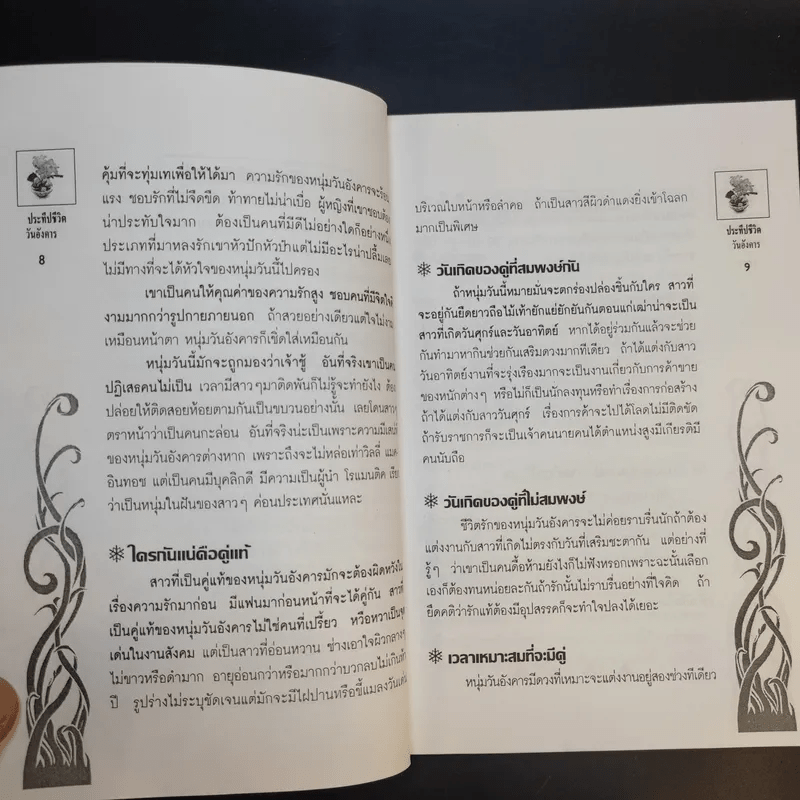 ประทีปชีวิต
วันอังคาร
8
คุ้มที่จะทุ่มเทเพื่อให้ได้มา ความรักของหนุ่มวันอังคารจะร้อน
แรง ชอบรักที่ไม่จืดชืด ท้าทายไม่น่าเบื่อ ผู้หญิงที่เขาชอบต้อง
น่าประทับใจมาก ต้องเป็นคนที่มีดีไม่อย่างใดก็อย่างหนึ่ง
ประเภทที่มาหลงรักเขาหัวปักหัวปำแต่ไม่มีอะไรน่าปลื้มเลย
ไม่มีทางที่จะได้หัวใจของหนุ่มวันนี้ไปครอง
เขาเป็นคนให้คุณค่าของความรักสูง ชอบคนที่มีจิตใจ
งามมากกว่ารูปกายภายนอก ถ้าสวยอย่างเดียวแต่ใจไม่งาม
เหมือนหน้าตา หนุ่มวันอังคารก็เชิดใส่เหมือนกัน
หนุ่มวันนี้มักจะถูกมองว่าเจ้าชู้ อันที่จริงเขาเป็นคน
ปฏิเสธคนไม่เป็น เวลามีสาวๆมาติดพันก็ไม่รู้จะทำยังไง ต้อง
ปล่อยให้ติดสอยห้อยตามกันเป็นขบวนอย่างนั้น เลยโดนสาวๆ
ตราหน้าว่าเป็นคนกะล่อน อันที่จริงน่ะเป็นเพราะความมีเสน่ห์
ของหนุ่มวันอังคารต่างหาก เพราะถึงจะไม่หล่อเท่าวิลลี่ แมค
อินทอช แต่เป็นคนมีบุคลิกดี มีความเป็นผู้นำ โรแมนติค เรียก
ว่าเป็นหนุ่มในฝันของสาวๆ ค่อนประเทศนั่นแหละ
ใครกันแน่คือคู่แท้
สาวที่เป็นคู่แท้ของหนุ่มวันอังคารมักจะต้องผิดหวังใน
เรื่องความรักมาก่อน มีแฟนมาก่อนหน้าที่จะได้คู่กัน สาวที่
เป็นคู่แท้ของหนุ่มวันอังคารไม่ใช่คนที่เปรี้ยว หวือหวาเป็นจุด
เด่นในงานสังคม แต่เป็นสาวที่อ่อนหวาน ช่างเอาใจผิวกลางๆ
ไม่ขาวหรือดำมาก อายุอ่อนกว่าหรือมากกว่าบวกลบไม่เกินห้า
ปี รูปร่างไม่ระบุชัดเจนแต่มักจะมีไฝปานหรือขี้แมลงวันเด่น
ประทีปชีวิต
วันอังคาร
9
บริเวณใบหน้าหรือลำคอ ถ้าเป็นสาวสีผิวดำแดงยิ่งเข้าโฉลก
มากเป็นพิเศษ
วันเกิดของคู่ที่สมพงษ์กัน
ถ้าหนุ่มวันนี้หมายมั่นจะตกร่องปล่องชิ้นกับใคร สาวที่
จะอยู่กันยืดยาวถือไม้เท้ายักแย่ยักยันกันตอนแก่เฒ่าน่าจะเป็น
สาวที่เกิดวันศุกร์และวันอาทิตย์ หากได้อยู่ร่วมกันแล้วจะช่วย
กันทำมาหากินช่วยกันเสริมดวงมากทีเดียว ถ้าได้แต่งกับสาว
วันอาทิตย์งานที่จะรุ่งเรืองมากจะเป็นงานเกี่ยวกับการค้าขาย
ของหนักต่างๆ หรือไม่ก็เป็นนักลงทุนหรือทำเรื่องการก่อสร้าง
ถ้าได้แต่งกับสาววันศุกร์ เรื่องการค้าจะไปได้โลดไม่มีติดขัด
ถ้ารับราชการก็จะเป็นเจ้าคนนายคนได้ตำแหน่งสูงมีเกียรติมี
คนนับถือ
วันเกิดของคู่ที่ไม่สมพงษ์
ชีวิตรักของหนุ่มวันอังคารจะไม่ค่อยราบรื่นนักถ้าต้อง
แต่งงานกับสาวที่เกิดไม่ตรงกับวันที่เสริมชะตากัน แต่อย่างที่
รู้ๆ ว่าเขาเป็นคนดื้อห้ามยังไงก็ไม่ฟังหรอกเพราะฉะนั้นเลือก
เองก็ต้องทนหน่อยละกันถ้ารักนั้นไม่ราบรื่นอย่างที่ใจคิด ถ้า
ยึดคติว่ารักแท้ต้องมีอุปสรรคก็จะทำใจปลงได้เยอะ
เวลาเหมาะสมที่จะมีคู่
หนุ่มวันอังคารมีดวงที่เหมาะจะแต่งงานอยู่สองช่วงทีเดียว